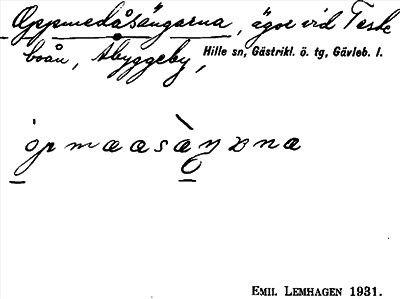 Oppmedåsängarna, ägor vid Teske
boån, Åbyggeby,
Hille sn, Gästrikl. ö. tg, Gävleb. l.
EMIL LEMHAGEN 1931.